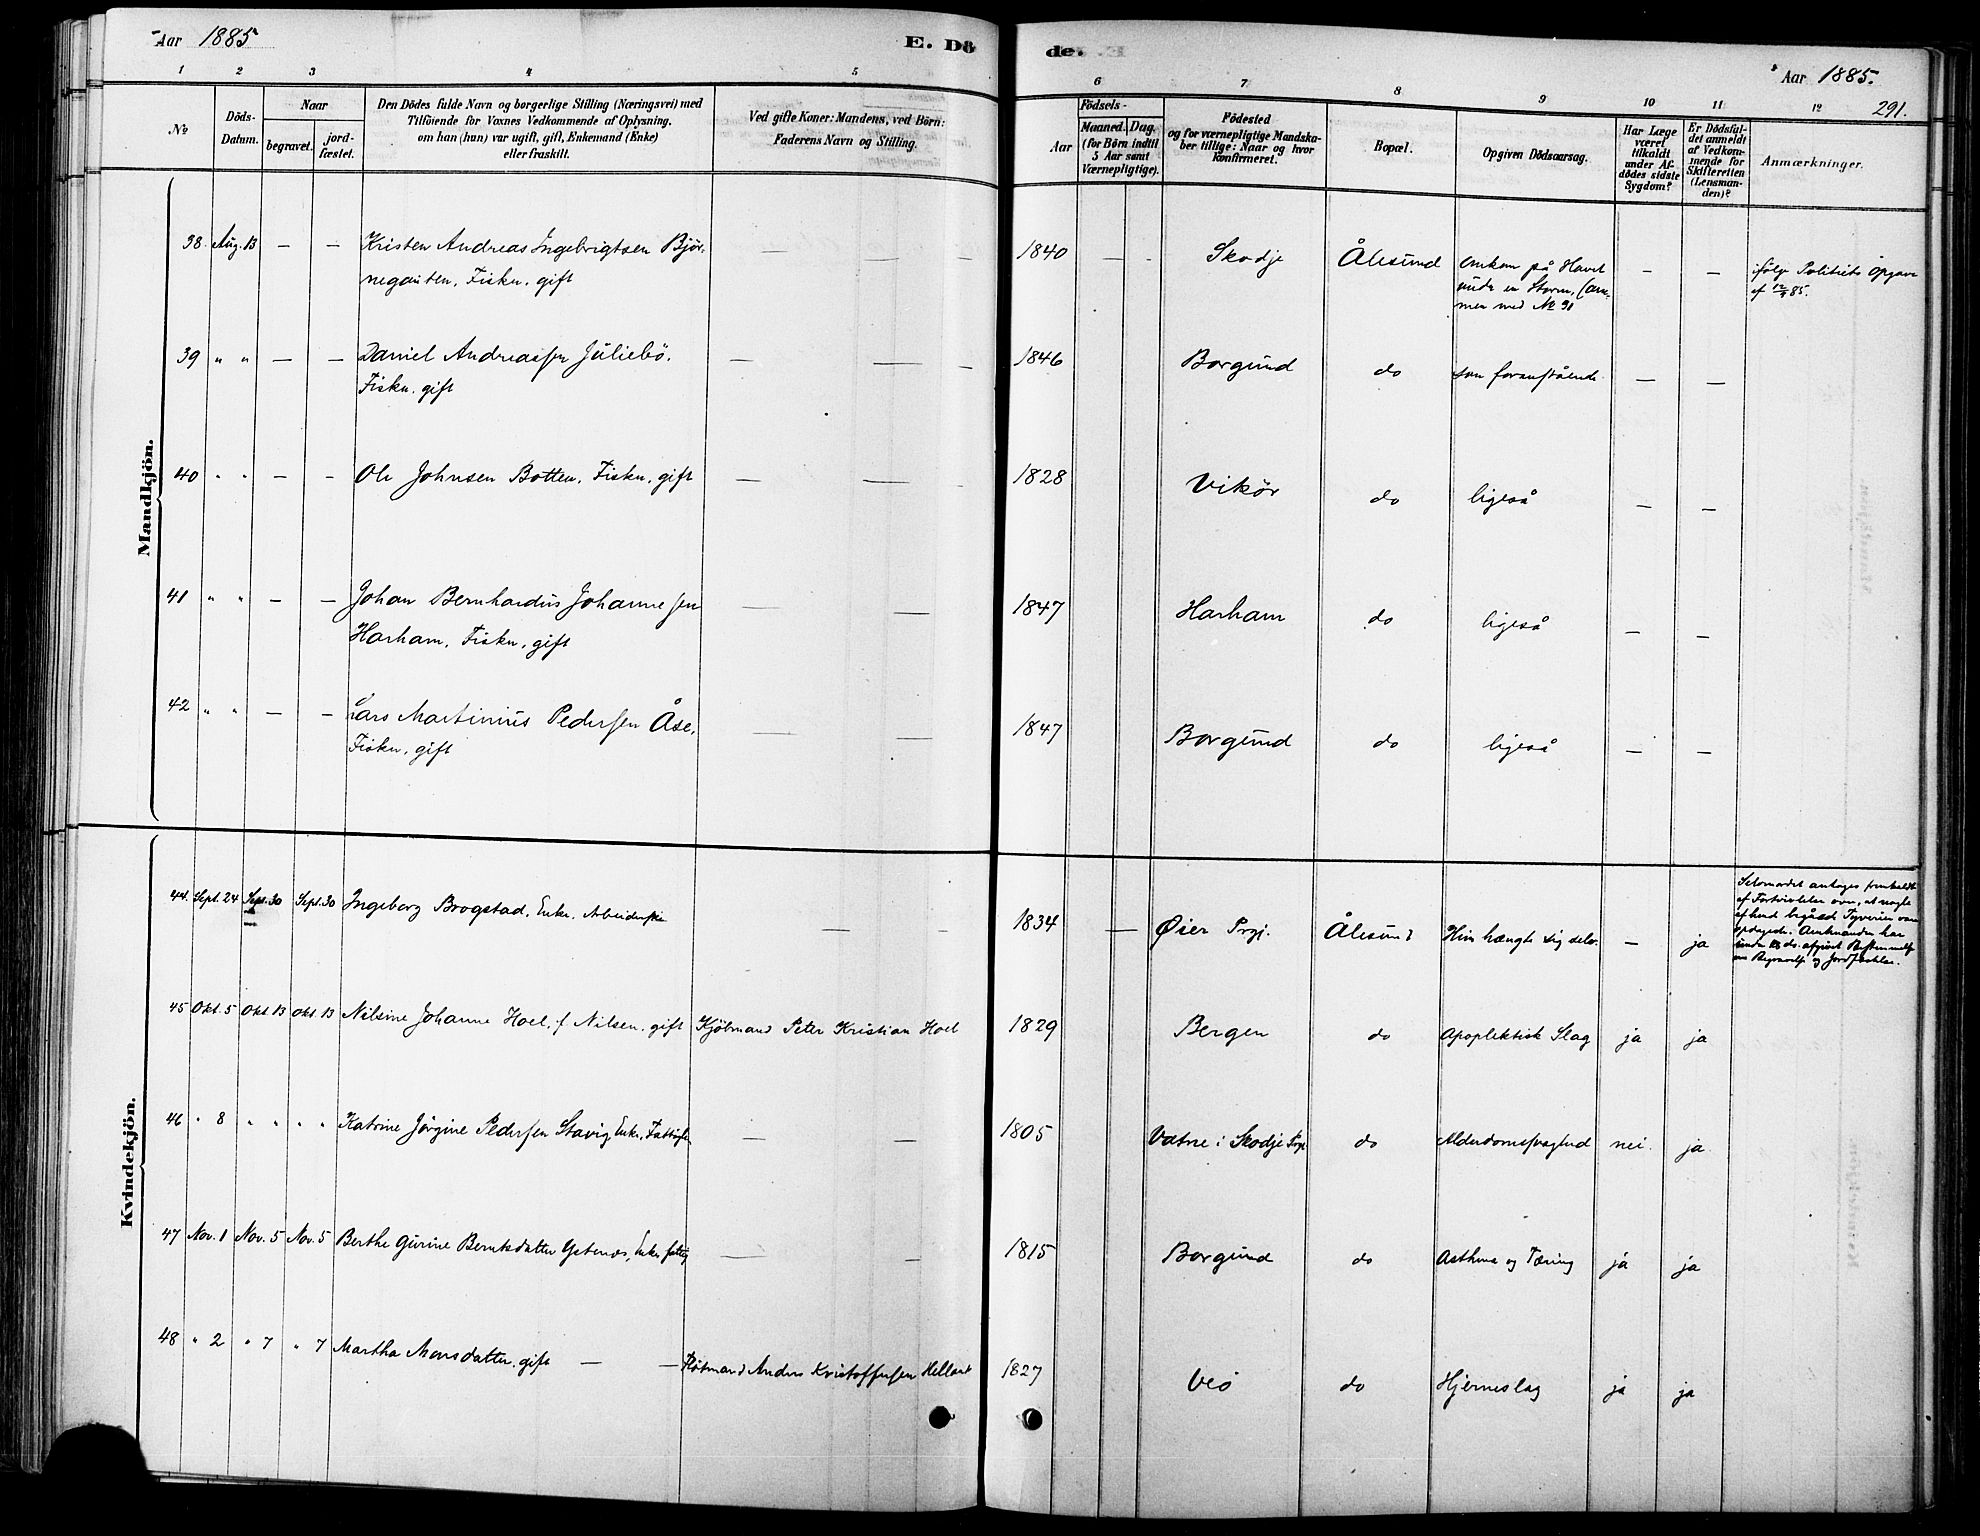 Aar 1885
E. Dö
de.
Aar 1885.
291.
1 2 3 4 5 6 7 8 9 10 11 12
№
Döds-
Datum.
Naar
begravet.
jord-
fæstet.
Den Dödes fulde Navn og borgerlige Stilling (Næringsvei) med
Tilföiende for Voxnes Vedkommende af Oplysning,
om han (hun) var ugift, gift, Enkemand (Enke)
eller fraskilt.
Ved gifte Koner: Mandens, ved Börn:
Faderens Navn og Stilling.
Födsels-
Aar
Maaned. Dag.
(for Börn indtil
5 Aar samt
Værnepligtige).
Födested
og for værnepligtige Mandska-
ber tillige: Naar og hvor
konfirmeret.
Bopæl.
Opgiven Dödsaarsag.
Har Læge
været
tilkaldt
under Af-
dödes sidste
Sygdom?
Er Dödsfal-
det anmeldt
af Vedkom-
mende for
Skifteretten
(Lensman-
den)?
Anmærkninger.
Mandkjön.
38. Aug. 13 — — Kristen Andreas Ingebrigtsen Björ- — — — 1840 — - Skodje Ålesund omkom på Havet — — ifølge Politiets Opgave
negauten, Fisker, gift under en Storm, (sam- af 12/9 85.
men med №
39 " " — — Daniel Andreassen Juliebö, — — — 1846 Borgund do som foranstående — —
Fisker, gift
40 " " — — Ole Johnsen Botten, Fisker, gift — — - 1828 Vikör do ligeså — —
41 " " — — Johan Bernhardus Johannessen — — 1847 Harham do ligeså — —
Harham, Fisker, gift
42 " " — — Lars Martinius Pedersen Åse, — — 1847 Borgund do ligeså — —
Fisker, gift
Kvindekjön.
44. Sept. 24 Sept. 30 Sept. 30 Ingeborg Brogstad, Enke, — - 1834 — Øier Prgj. Ålesund Hun hængte sig selv. — ja Selvmordet antages fremkaldt
af Fortvivlelse over, at nogle
af hende begåede Tyverier vare
opdagede. Amtmanden har
under do. afgivet Bestemmelse
om Begravelse og Jordfæstelse.
45 Okt. 5 Okt. 13 Okt. 13 Nilsine Johanne Hoel, f. Nilsen, gift Kjöbmand Peter Kristian Hoel 1829 Bergen do Apoplektisk Slag ja ja
46 " 8 " " " " Katrine Jörgine Pedersen Stavig, Enke, — — 1805 Vatne i Skodje Prgj. do Alderdomssvaghed nei. ja
47 Nov. 1 Nov. 5 Nov. 5 Berthe Gurine Berntsdatter Ystenes, Enke, fattig — — 1815 Borgund do Asthma og Tæring ja ja
48 " 2 " 7 " 7 Martha Monsdatter, gift — — Anders Kristoffersen Helland 1827 Veö do Hjerneslag ja ja